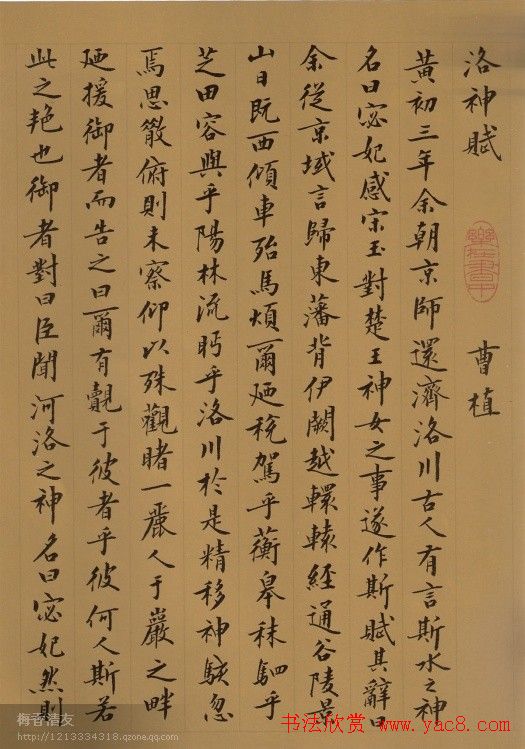 洛神賦 曹植
黃初三年余朝京師還濟洛川古人有言斯水之神
名曰宓妃感宋玉對楚王神女之事遂作斯賦其辭曰
余從京域言歸東藩背伊闕越轘轅經通谷陵景
山日既西傾車殆馬煩爾廼稅駕乎蘅皋秣駟乎
芝田容與乎陽林流眄乎洛川於是精移神駭忽
焉思散俯則未察仰以殊觀睹一麗人于巖之畔
廼援御者而告之曰爾有覿于彼者乎彼何人斯若
此之艷也御者對曰臣聞河洛之神名曰宓妃然則
梅香清友
http://1213334318.qzone.qq.com
书法欣赏
www.yac8.com